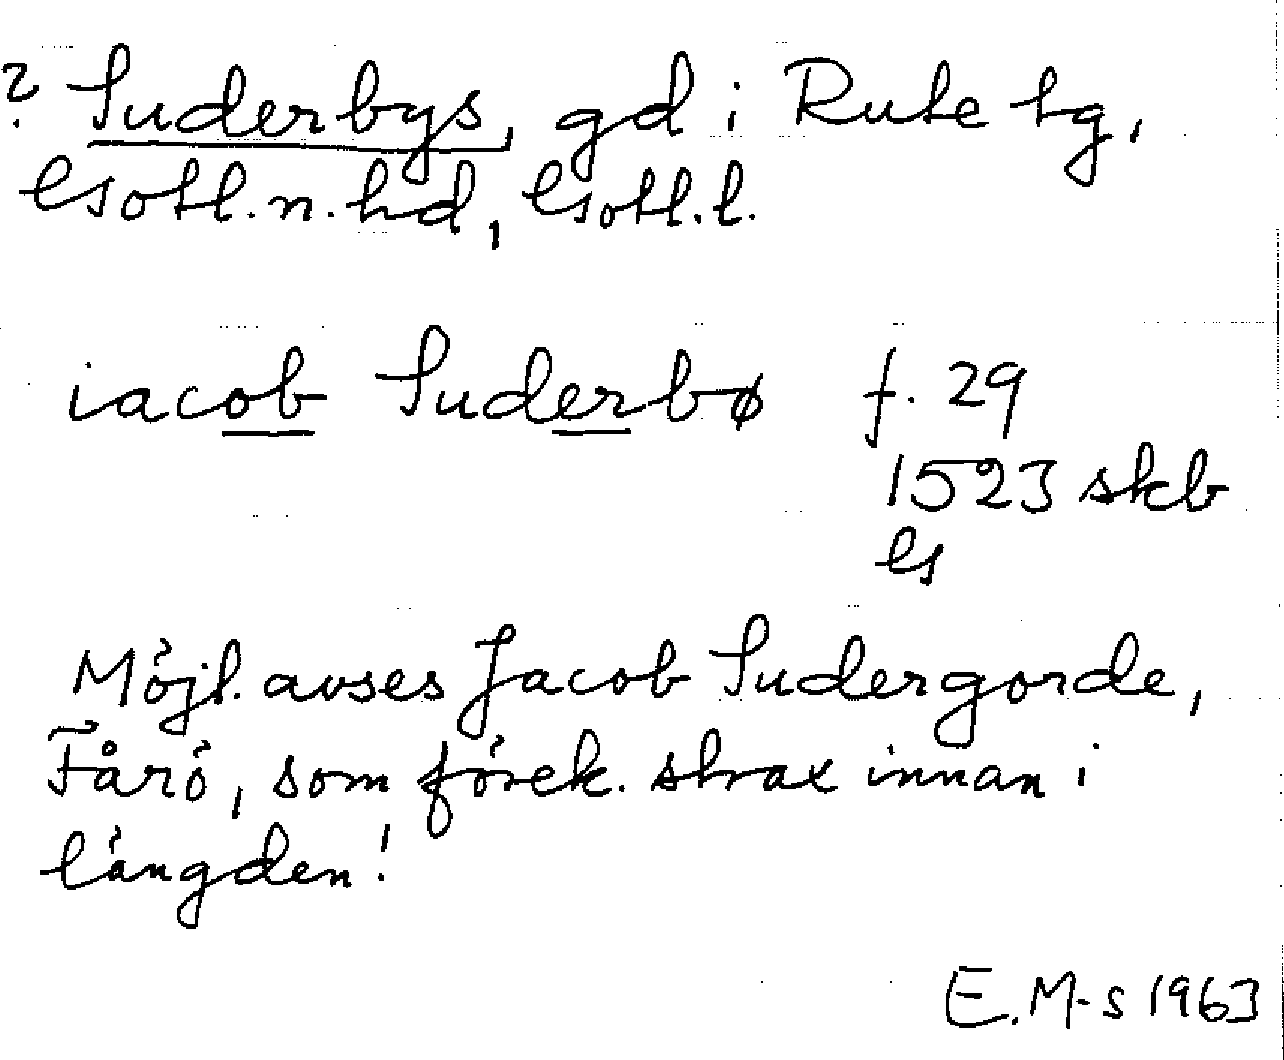 ? Suderbys, gd i Rute tg,
Gotl. n. hd, Gotl. l.
iacob Suderbø f. 29
1523 skb
G
Möjl. avses Jacob Sudergorde,
Fårö, som förek. strax innan i
längden!
E. M-s 1963